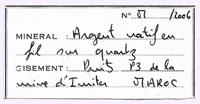 N° VI /2006
MINERAL: Argent natif en
fil sur quartz
GISEMENT: Puits P3 de la
mine d'Imiter MAROC